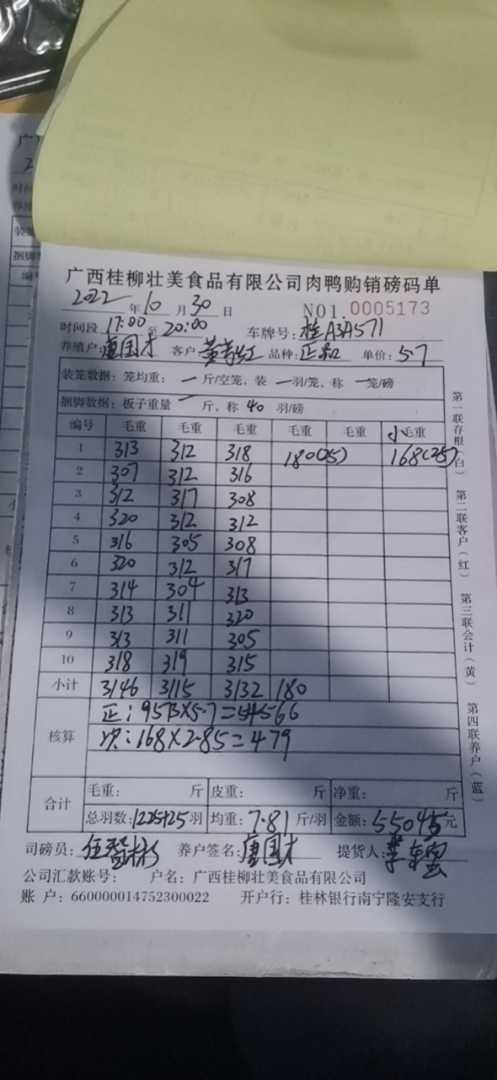 广西桂柳壮美食品有限公司肉鸭购销磅码单
2022年10月30日 NO1.0005173
时间段 17:00至20:00 车牌号:桂A3A571
养殖户:唐国才 客户 品种:正和 单价:5.7
装笼数据:笼均重:一斤/空笼,装一羽/笼,称一笼/磅
捆脚数据:板子重量一斤,称40羽/磅
编号 毛重 毛重 毛重 毛重 毛重 小毛重
1 313 312 318 180(25) 168(25)
2 307 312 316
3 312 317 308
4 320 312 312
5 316 305 308
6 320 312 317
7 314 304 313
8 313 311 320
9 313 311 305
10 318 319 315
小计 3146 3115 3132 180
核算 正:9573×5.7=54566
次:168×2.85=479
合计 毛重: 斤 皮重: 斤 净重: 斤
总羽数:1225+25羽 均重:7.81斤/羽 金额:55045元
司磅员: 养户签名:唐国才 提货人:
公司汇款账号: 户名:广西桂柳壮美食品有限公司
账 户:660000014752300022 开户行:桂林银行南宁隆安支行
第一联存根(白)
第二联客户(红)
第三联会计(黄)
第四联养户(蓝)